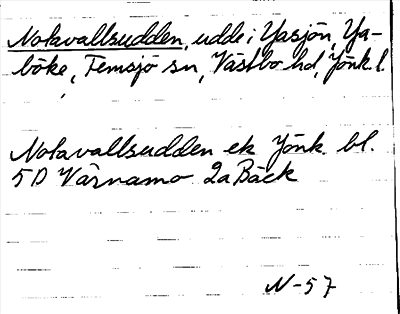 Notavallsudden, udde i Yasjön, Ya-
böke, Femsjö sn, Västbo hd, Jönk. l.
Notavallsudden ek Jönk. bl.
5D Värnamo 2a Bäck
N-57